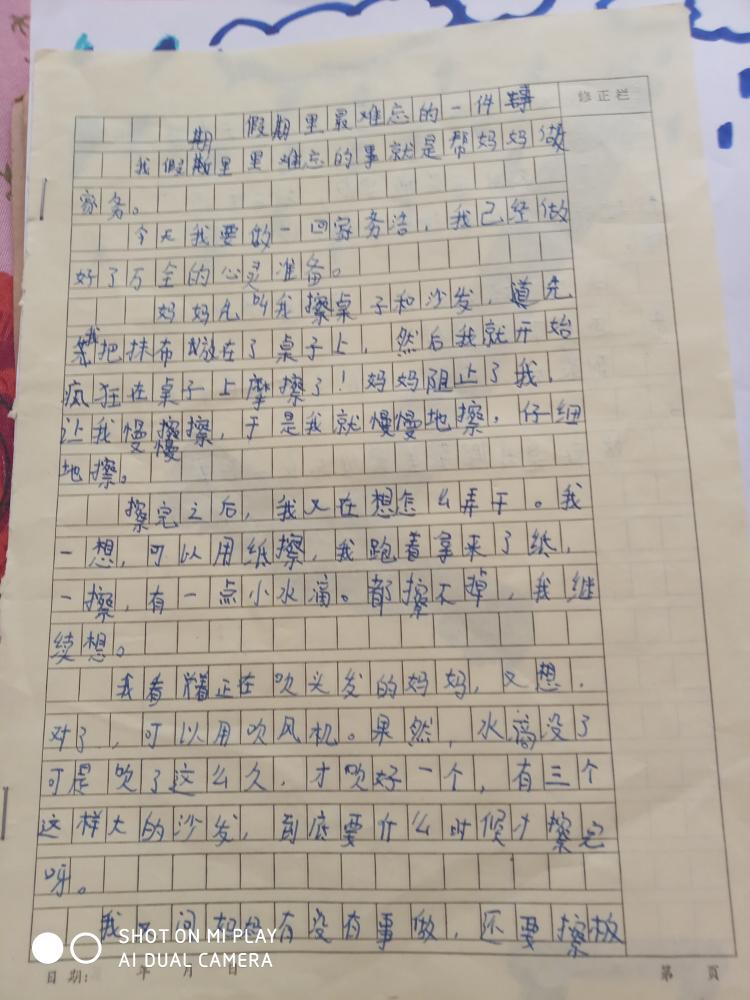 修正栏
假期里最难忘的一件事
期
我假期里里难忘的事就是帮妈妈做
家务。
今天我要做一回家务活，我已经做
好了万全的心灵准备。
妈妈先叫我擦桌子和沙发，首先
我把抹布放在了桌子上，然后我就开始
疯狂在桌子上摩擦了！妈妈阻止了我，
让我慢慢擦，于是我就慢慢地擦，仔细
地擦。
擦完之后，我又在想怎么弄干。我
一想，可以用纸擦，我跑着拿来了纸，
一擦，有一点小水滴。都擦不掉，我继
续想。
我看着正在吹头发的妈妈，又想，
对了，可以用吹风机。果然，水滴没了
可是吹了这么久，才吹好一个，有三个
这样大的沙发，到底要什么时候才擦完
呀。
我又问妈妈有没有事做，还要擦板
SHOT ON MI PLAY
AI DUAL CAMERA
日期： 年 月 日
第 页